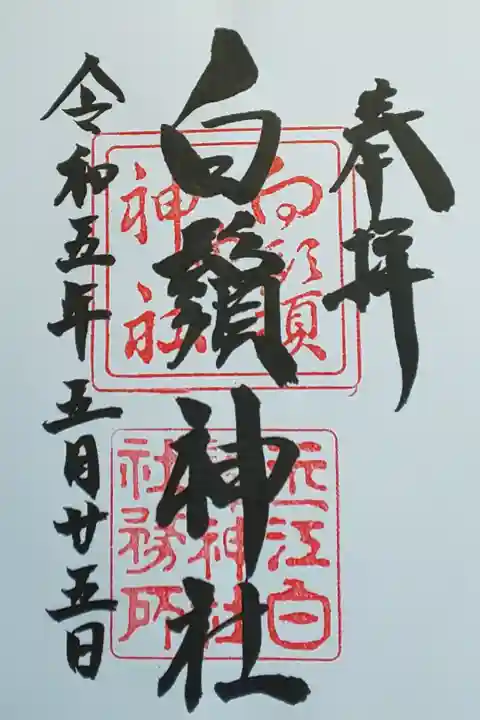 奉拝
白鬚神社
令和五年五月廿五日
白須
神社
近江白
鬚神社
社務所